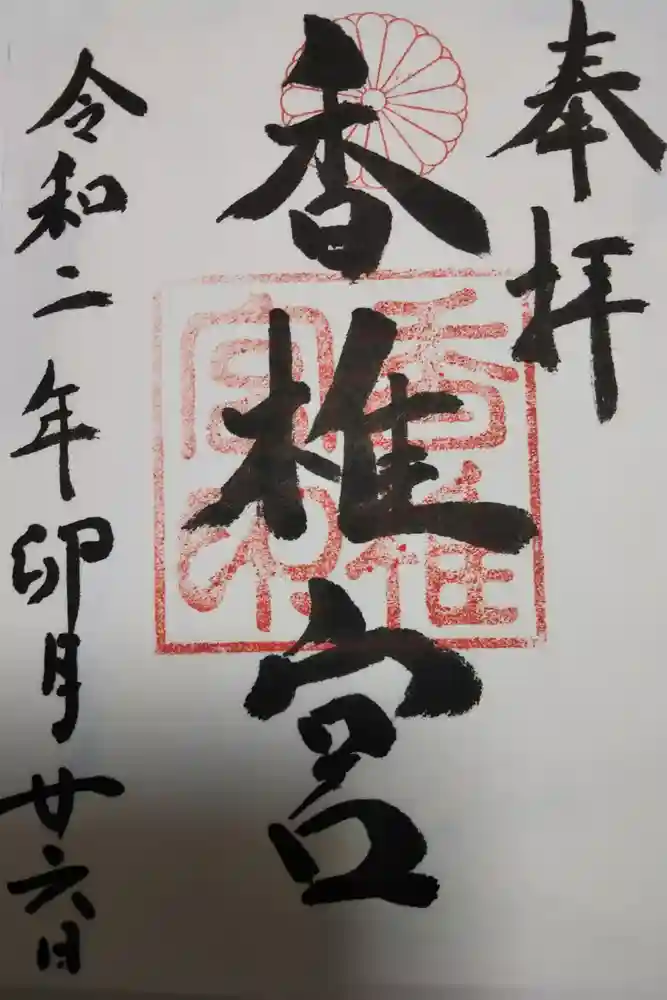 奉拝
香椎宮
香椎宮印
令和二年卯月廿六日